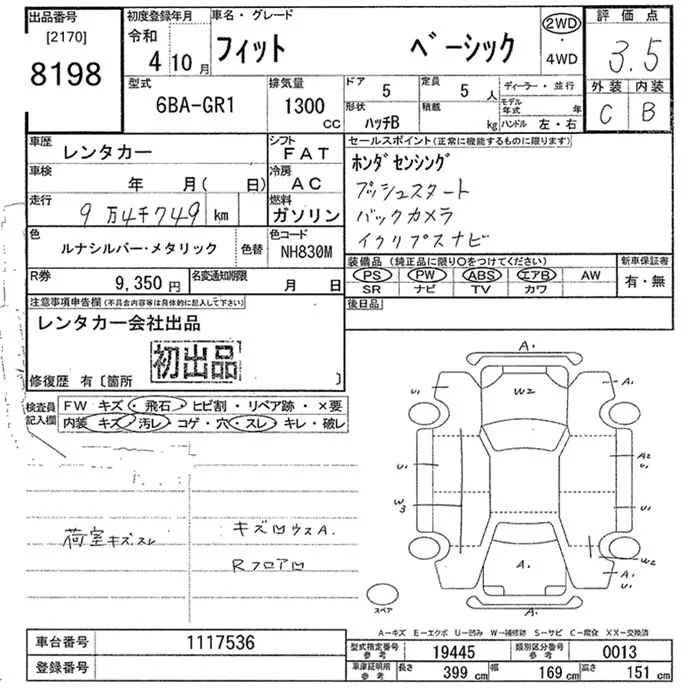 出品番号
[2170]
8198
初度登録年月
令和
4年10月
車名・グレード
フィット ベーシック
2WD
・
4WD
評価点
3.5
外装 内装
C B
型式
6BA-GR1
排気量
1300 CC
ドア 5
定員 5人
形状 ハッチB
積載 kg
ディーラー・並行
モデル年式 年
ハンドル 左・右
車歴
レンタカー
シフト
FAT
車検
年 月( 日)
冷房
AC
走行
9万4千749 km
燃料
ガソリン
色
ルナシルバー・メタリック
色替
色コード
NH830M
R券 9,350円
名変通知期限 月 日
セールスポイント(正常に機能するものに限ります)
ホンダセンシング
プッシュスタート
バックカメラ
イクリプスナビ
装備品(純正品に限り○をつけてください)
PS PW ABS エアB AW
SR ナビ TV カワ
新車保証書
有・無
後日品
注意事項申告欄(不具合内容等は具体的に記入して下さい)
レンタカー会社出品
初出品
修復歴 有〔箇所 〕
検査員記入欄
FW キズ・飛石・ヒビ割・リペア跡・×要
内装 キズ・汚レ・コゲ・穴・スレ・キレ・破レ
荷室キズ.スレ
キズ凹ウスA.
Rフロア凹
A.
W2
A.
U.
A2
U.
U.
W3
U.
W2
A.
A.
U.
A.
スペア
A-キズ E-エクボ U-凹み W-補修跡 S-サビ C-腐食 XX-交換済
車台番号 1117536
登録番号
型式指定番号 参考 19445
類別区分番号 参考 0013
車庫証明用 参考
長さ 399 cm
幅 169 cm
高さ 151 cm